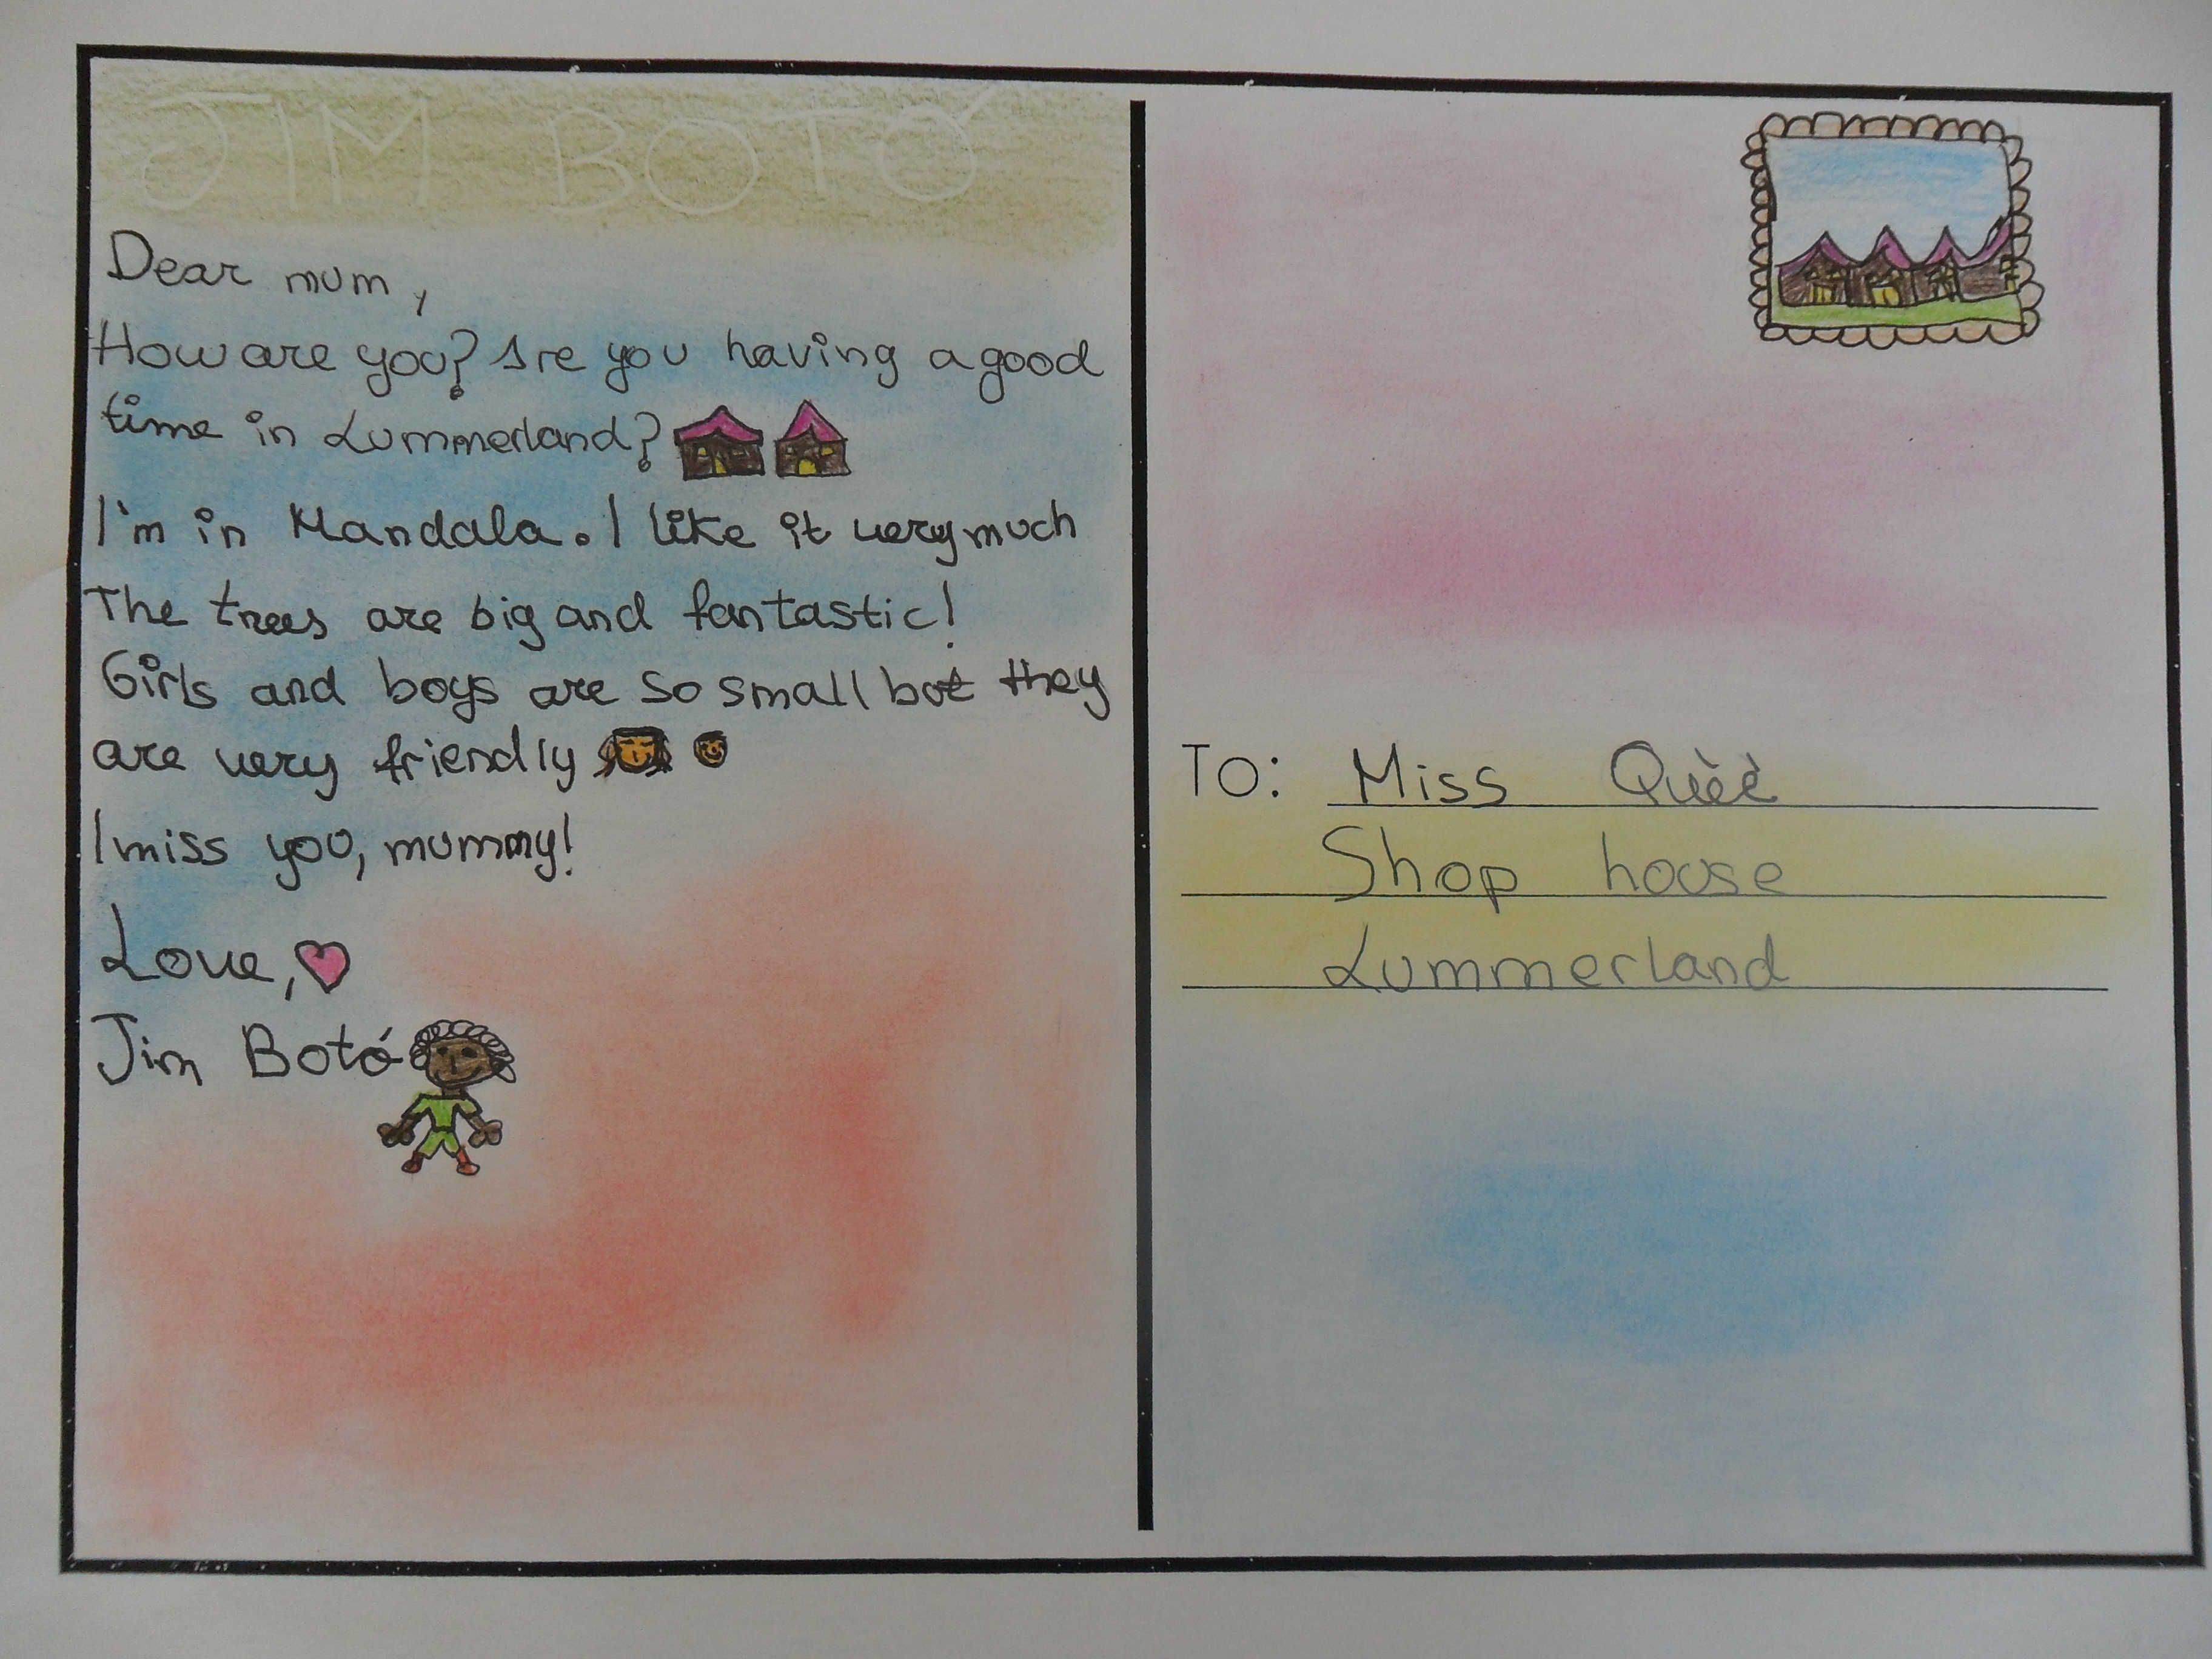 JIM BOTÓ
Dear mum,
How are you? Are you having a good
time in Lummerland?
I'm in Mandala. I like it very much
The trees are big and fantastic!
Girls and boys are so small but they
are very friendly
I miss you, mummy!
Love,
Jim Botó
TO: Miss Quèè
Shop house
Lummerland